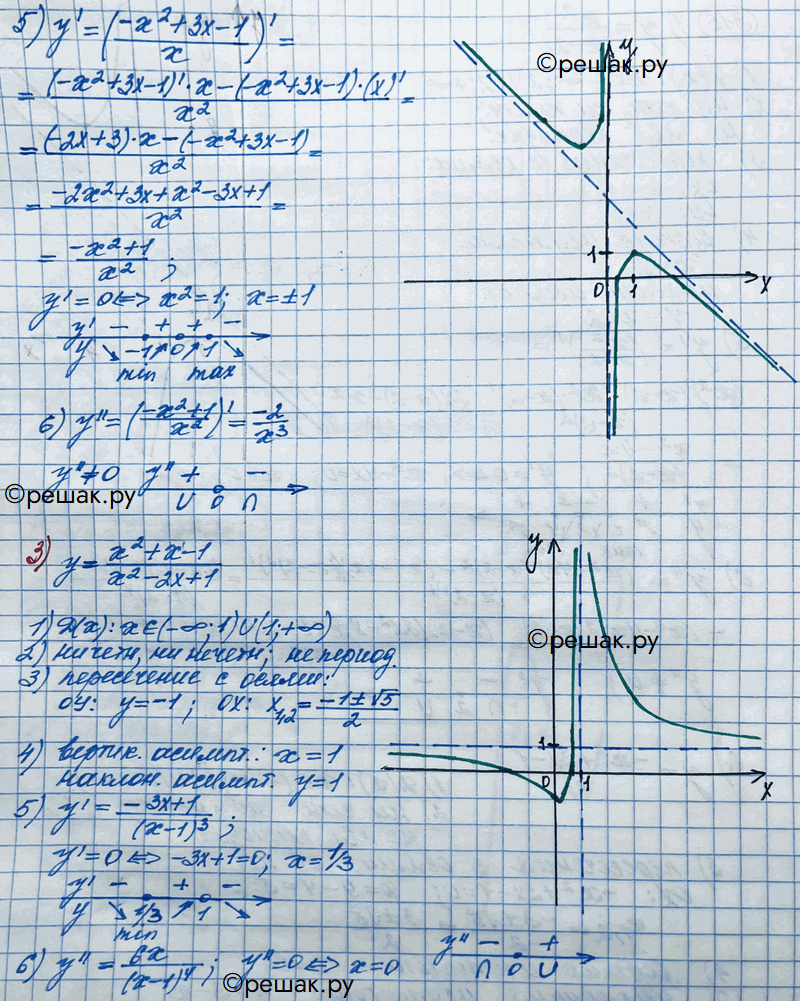 5) y' = (-x²+3x-1 / x)' =
= (-x²+3x-1)'·x-(-x²+3x-1)·(x)' / x² =
= (-2x+3)·x-(-x²+3x-1) / x² =
= -2x²+3x+x²-3x+1 / x² =
= -x²+1 / x² ;
y'=0 <=> x²=1; x=±1
y' - + + -
y ↘ -1 ↗ 0 ↗ 1 ↘
min max
6) y''=(-x²+1 / x²)' = -2 / x³
y''≠0 y'' + -
∪ 0 ∩
©решак.ру
©решак.ру
y
1
0 1 x
3) y = x²+x-1 / x²-2x+1
1) D(x): x∈(-∞;1)∪(1;+∞)
2) ни четн, ни нечетн; не период.
3) пересечение с осями:
оу: y=-1; ох: x₁,₂ = -1±√5 / 2
4) вертик. асимпт.: x=1
наклон. асимпт. y=1
5) y' = -3x+1 / (x-1)³ ;
y'=0 <=> -3x+1=0; x=1/3
y' - + -
y ↘ 1/3 ↗ 1 ↘
min
6) y'' = 6x / (x-1)⁴ ; y''=0 <=> x=0
y'' - +
∩ 0 ∪
y
©решак.ру
1
0 1 x
©решак.ру